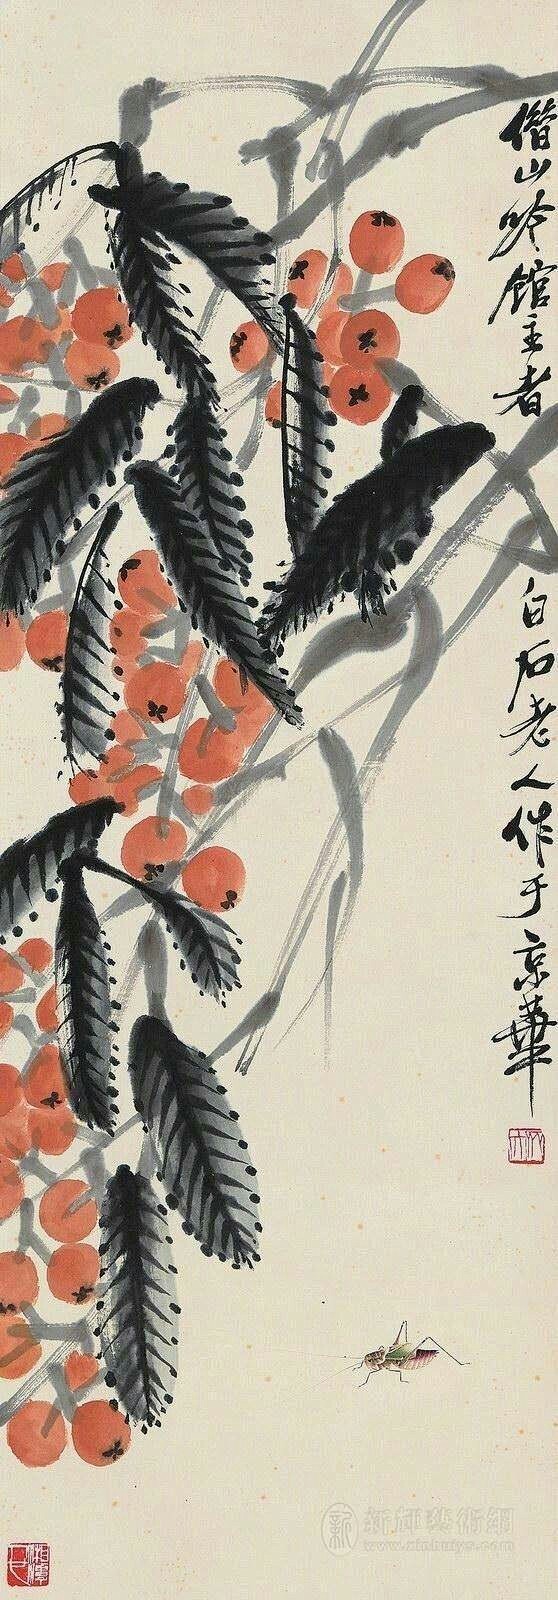 借山吟館主者 白石老人作于京華
湘潭人也
新輝藝術網
www.xinhuiys.com